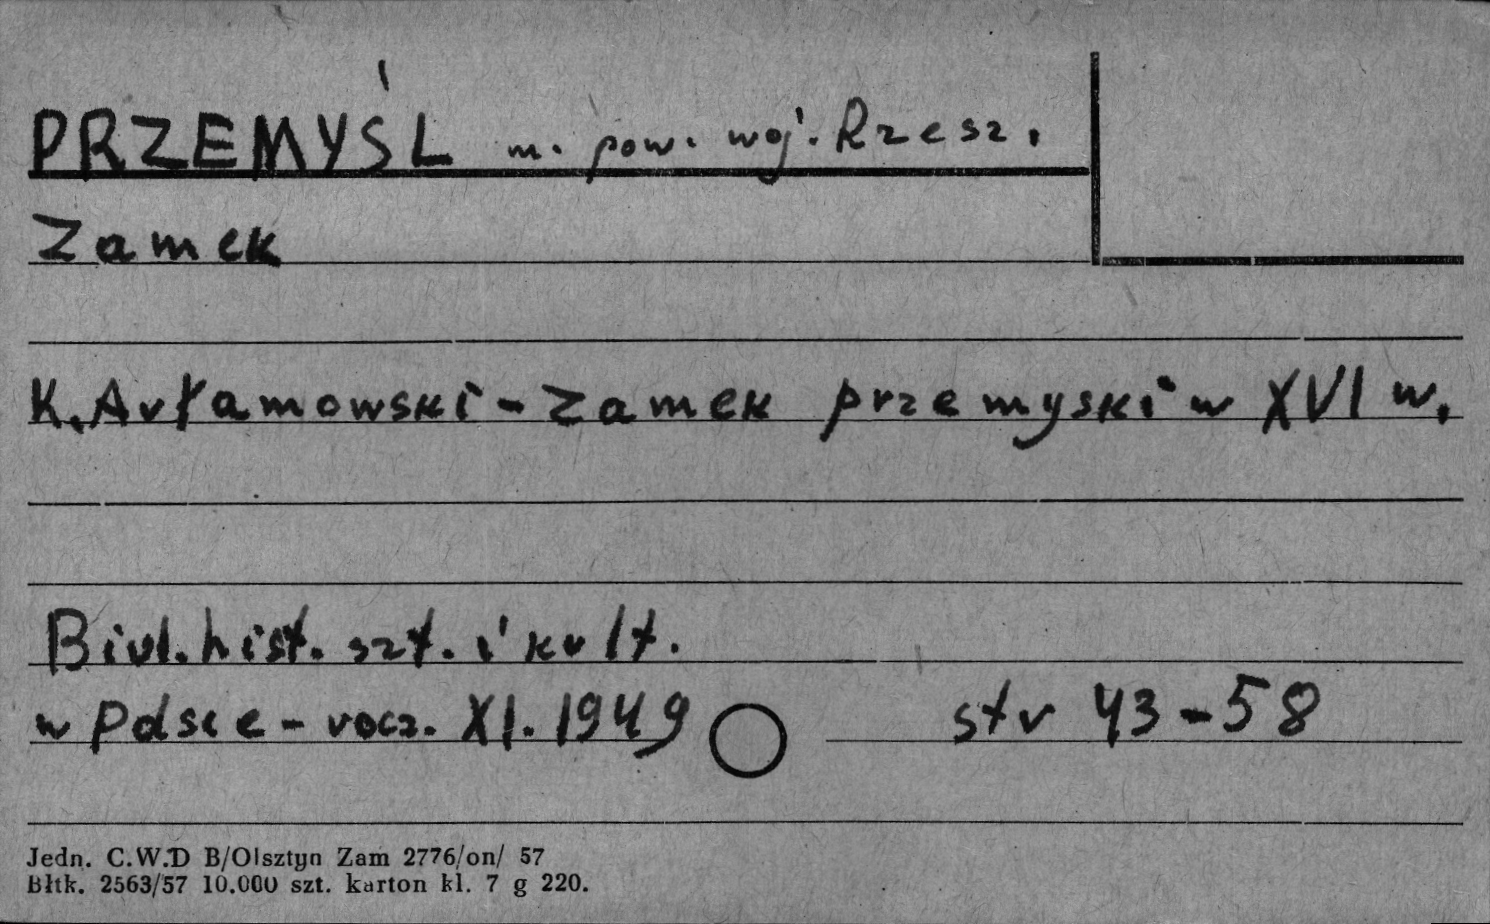 PRZEMYŚL m. pow. woj. Rzesz.
Zamek
K. Arłamowski - Zamek przemyski w XVI w.
Biul. hist. szt. i kult.
w Polsce - rocz. XI. 1949 str 43-58
Jedn. C.W.D B/Olsztyn Zam 2776/on/ 57
Błtk. 2563/57 10.000 szt. karton kl. 7 g 220.